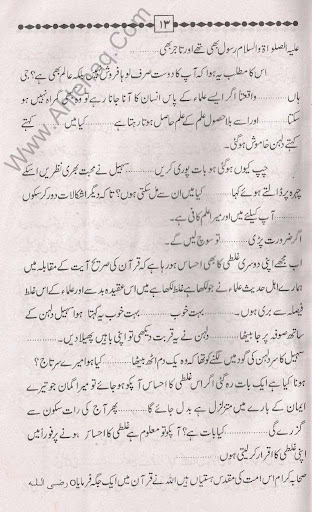 ۱۳
علیہ الصلوٰۃ والسلام رسول بھی تھے اور تاجر بھی
اس کا مطلب یہ ہوا کہ آپ کا دوست صرف لوہا فروش نہیں بلکہ عالم بھی ہے؟ جی
ہاں ............ واقعتاً اگر ایسے علماء کے پاس انسان کا آنا جانا رہے تو وہ کبھی گمراہ نہیں ہو
سکتا ............ اور اسے بلا حصول علم کے علم حاصل ہوتا رہتا ہے ............ کیا میں ............ کہتے
کہتے دلہن خاموش ہو گئی۔
چپ کیوں ہو گئی ہو بات پوری کریں ............ سہیل نے محبت بھری نظریں اسکے
چہرہ پر ڈالتے ہوئے کہا ............ کیا میں ان سے مل سکتی ہوں؟ تاکہ دیگر اشکالات دور کر سکوں
............ آپ کیلئے میں اور میرا علم کافی ہے۔
اگر ضرورت پڑی ............ تو سوچ لیں گے۔
اب مجھے اپنی دوسری غلطی کا بھی احساس ہو رہا ہے کہ قرآن کی صریح آیت کے مقابلہ میں
ہمارے اہل حدیث علماء نے جو لکھا ہے غلط لکھا ہے میں اس عقیدہ بد سے اور علماء کے اس غلط
فیصلہ سے بری ہوں۔ ............ بہت خوب ............ بہت خوب یہ کہتا ہوا سہیل دلہن کے
ساتھ صوفہ پر جا بیٹھا ............ دلہن نے یہ قربت دیکھی تو اپنی باہیں پھیلا دیں۔
سہیل کا سر دلہن کی گود میں لگنے کو تھا کہ وہ یک دم اٹھ بیٹھا ............ کیا ہوا میرے سرتاج؟
ہونا کیا ہے ایک بات رہ گئی اگر اس غلطی کا احساس آپکو ہو جائے تو میرا گمان جو تیرے
ایمان کے بارے میں متزلزل ہے بدل جائے گا ............ پھر آج کی رات سکون سے
گزرے گی ............ کیا بات ہے؟ آپکو تو معلوم ہے غلطی کا احساس ہونے پر فوراً میں
اپنی غلطی کا اقرار کر لیتی ہوں
صحابہ کرام اس امت کی مقدس ہستیاں ہیں اللہ نے قرآن میں ایک جگہ فرمایا رضی اللہ
www.AhleHaq.Com